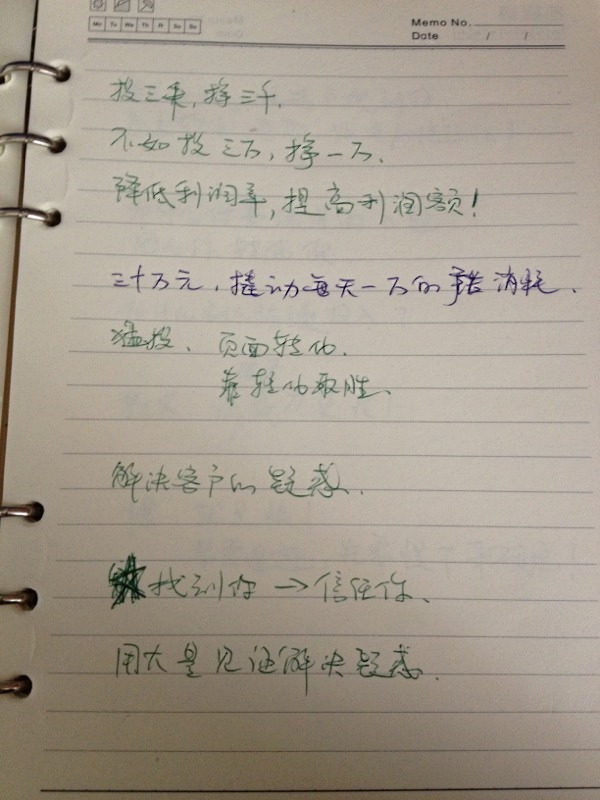 Mo Tu We Th Fr Sa Su
Memo No.
Date / /
投三千,挣三千.
不如投三万,挣一万.
降低利润率,提高利润额!
三十万元,撬动每天一万的 消耗.
猛投、页面转化.
靠转化取胜.
解决客户的疑惑.
找到你→信任你、
用大量见证解决疑惑.